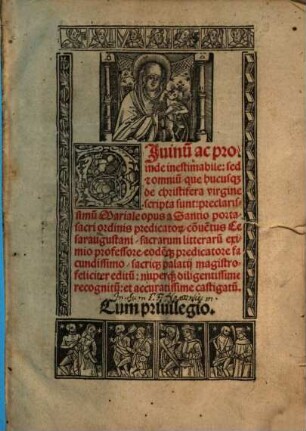 Diuinũ ac pro
inde inestimabile: sed
⁊ omniũ que hucusqȝ
de christifera virgine
scripta sunt: preclaris
simũ Mariale opus a Sancio porta
sacri ordinis predicatoꝝ cõuẽtus Ce
saraugustani sacrarum litterarũ exi
mio professore eodẽqȝ predicatore fa
cundissimo sacriqȝ palatij magistro
feliciter editũ: nuperqȝ diligentissime
recognitũ: et accuratissime castigatũ.
Cum priuilegio.